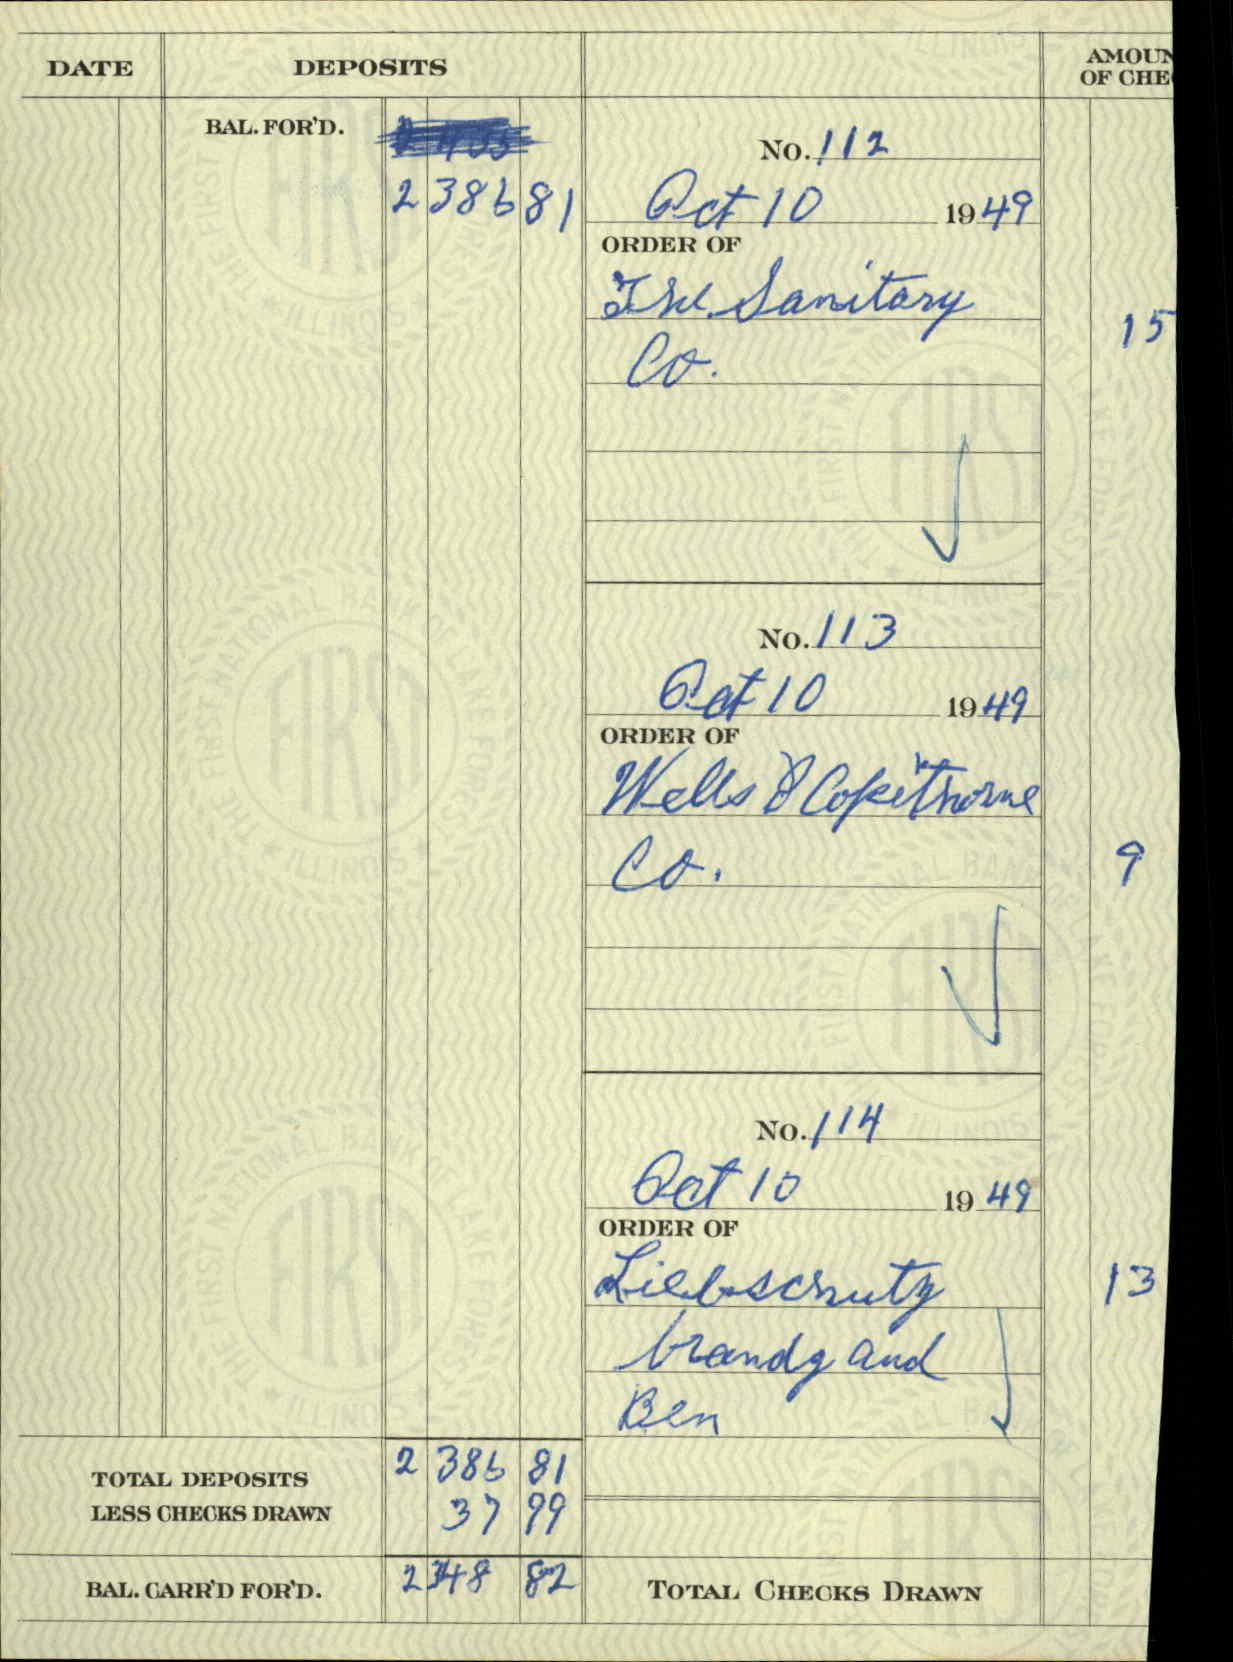 DATE DEPOSITS AMOUN
OF CHE
BAL. FOR'D.
2 386 81
No. 112
Oct 10 1949
ORDER OF
The Sanitary
Co. 15
No. 113
Oct 10 1949
ORDER OF
Wells & Copeithorne
Co. 9
No. 114
Oct 10 1949
ORDER OF
Liebschutz 13
brandy and
Ben
TOTAL DEPOSITS 2 386 81
LESS CHECKS DRAWN 37 99
BAL. CARR'D FOR'D. 2 348 82 TOTAL CHECKS DRAWN
FIRST NATIONAL BANK LAKE FOREST
ILLINOIS